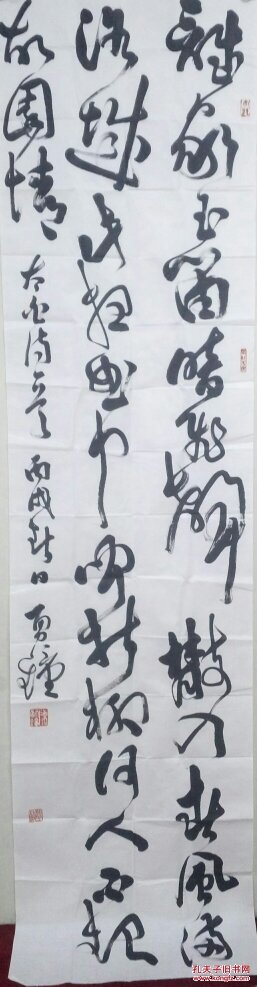 谁家玉笛暗飞声散入春风满
洛城此夜曲中闻折柳何人不起
故园情
太白诗一首 丙戌秋日
孔夫子旧书网